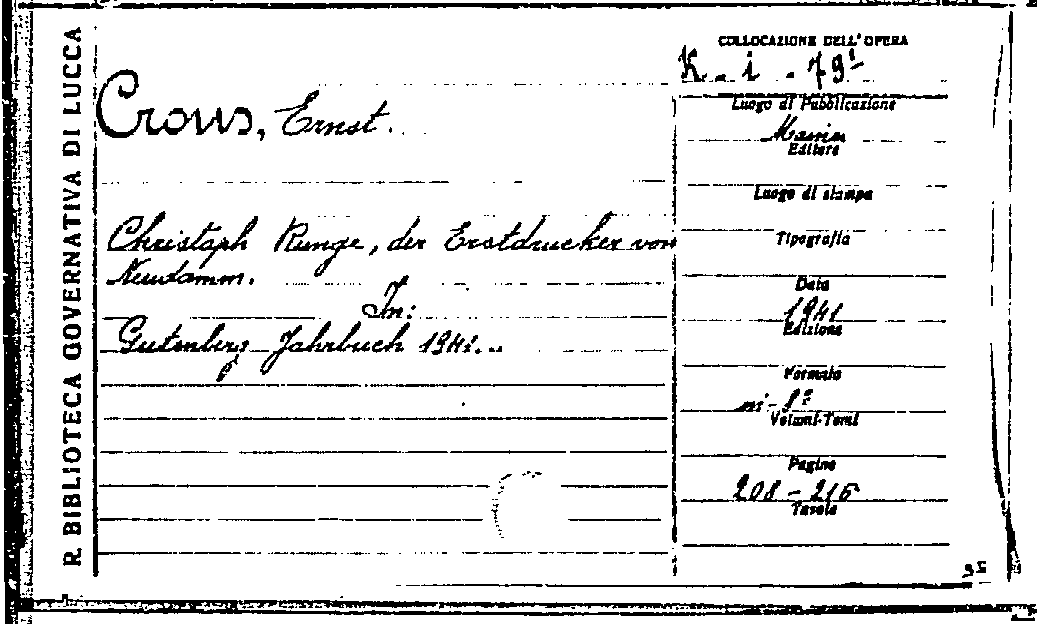 R. BIBLIOTECA GOVERNATIVA DI LUCCA
Crous, Ernst.
Christoph Runge, der Erstdrucker von
Neudamm.
In:
Gutenberg Jahrbuch 1941...
COLLOCAZIONE DELL'OPERA
K. i. 79¹
Luogo di Pubblicazione
Editore
Luogo di stampa
Tipografia
Data
1941
Edizione
Formato
in-8º
Volumi-Tomi
Pagine
208 - 216
Tavole